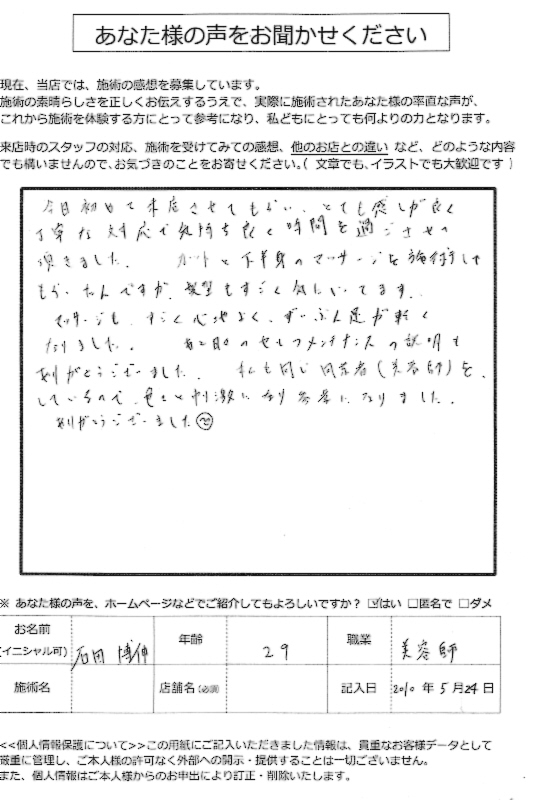 あなた様の声をお聞かせください
現在、当店では、施術の感想を募集しています。
施術の素晴らしさを正しくお伝えするうえで、実際に施術されたあなた様の率直な声が、
これから施術を体験する方にとって参考になり、私どもにとっても何よりの力となります。
来店時のスタッフの対応、施術を受けてみての感想、他のお店との違い など、どのような内容
でも構いませんので、お気づきのことをお寄せください。( 文章でも、イラストでも大歓迎です )
今日初めて来店させてもらい、とても感じが良く
丁寧な対応で気持ち良く時間を過ごさせて
頂きました。 カットと下半身のマッサージを施術して
もらったんですが、髪型もすごく気にいってます。
マッサージも、すごく心地よく、ずいぶん足が軽く
なりました。 のセルフメンテナンスの説明も
ありがとうございました。 私も同じ同業者(美容師)を
しているので、色々と刺激になり参考になりました。
ありがとうございました
※ あなた様の声を、ホームページなどでご紹介してもよろしいですか? ☑はい □匿名で □ダメ
お名前
(イニシャル可)
石田 博伸
年齢
29
職業
美容師
施術名
店舗名(必須)
記入日
2010 年 5 月 24 日
<<個人情報保護について>>この用紙にご記入いただきました情報は、貴重なお客様データとして
厳重に管理し、ご本人様の許可なく外部への開示・提供することは一切ございません。
また、個人情報はご本人様からのお申出により訂正・削除いたします。